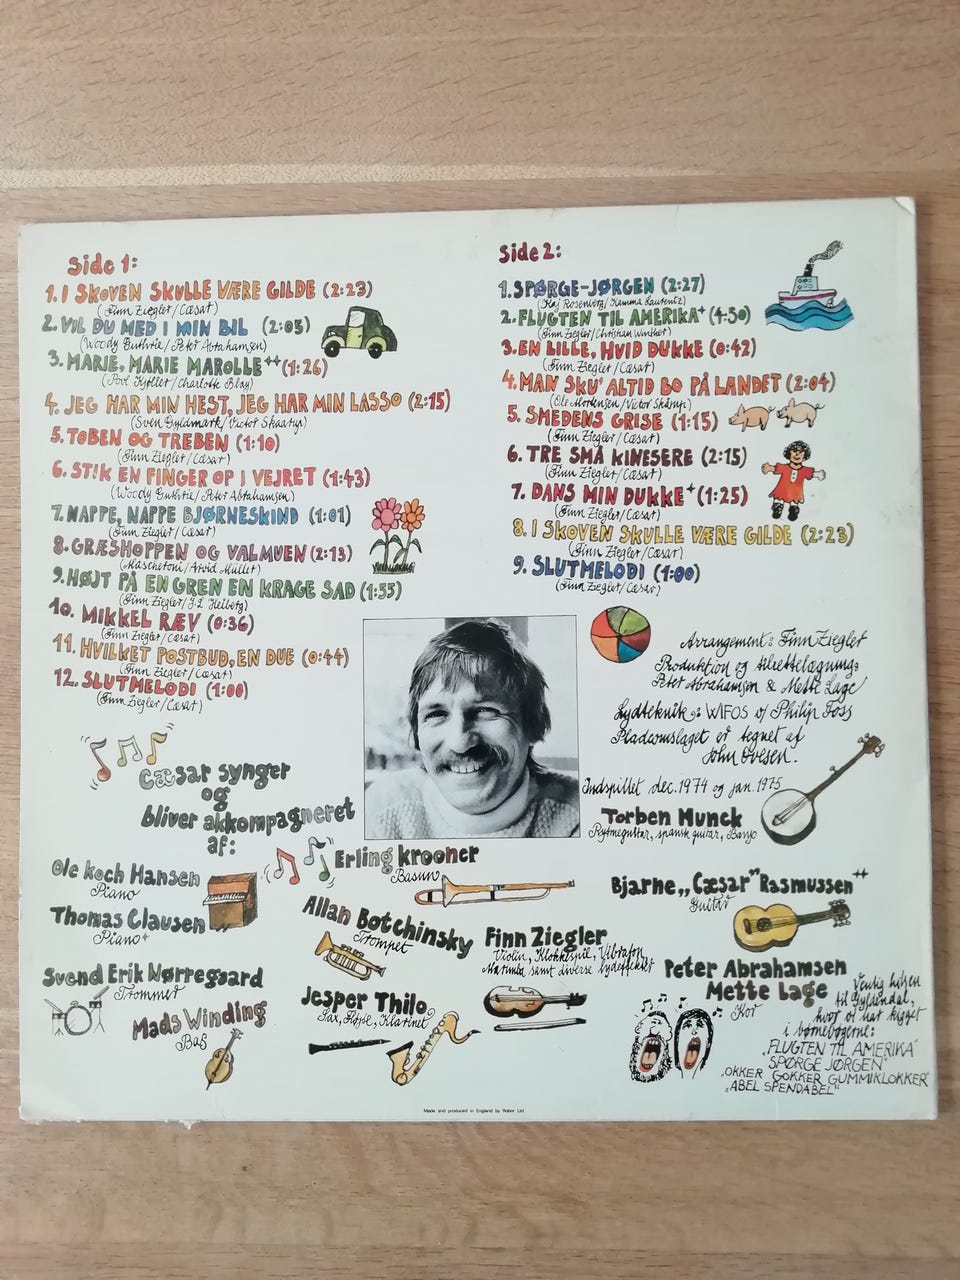 Side 1:
1. I SKOVEN SKULLE VÆRE GILDE (2:23)
(Finn Ziegler/Cæsar)
2. VIL DU MED I MIN BIL (2:05)
(Woody Guthrie/Peter Abrahamsen)
3. MARIE, MARIE MAROLLE++ (1:26)
(Poul Kjøller/Charlotte Blay)
4. JEG HAR MIN HEST, JEG HAR MIN LASSO (2:15)
(Sven Gyldmark/Victor Skaarup)
5. TOBEN OG TREBEN (1:10)
(Finn Ziegler/Cæsar)
6. STIK EN FINGER OP I VEJRET (1:43)
(Woody Guthrie/Peter Abrahamsen)
7. NAPPE, NAPPE BJØRNESKIND (1:01)
(Finn Ziegler/Cæsar)
8. GRÆSHOPPEN OG VALMUEN (2:13)
(Mascheroni/Arvid Müller)
9. HØJT PÅ EN GREN EN KRAGE SAD (1:55)
(Finn Ziegler/J.L. Heiberg)
10. MIKKEL RÆV (0:36)
(Finn Ziegler/Cæsar)
11. HVILKET POSTBUD, EN DUE (0:44)
(Finn Ziegler/Cæsar)
12. SLUTMELODI (1:00)
(Finn Ziegler/Cæsar)
Side 2:
1. SPØRGE-JØRGEN (2:27)
(Kaj Rosenberg/Kamma Laurentz)
2. FLUGTEN TIL AMERIKA+ (4:50)
(Finn Ziegler/Christian Winther)
3. EN LILLE, HVID DUKKE (0:42)
(Finn Ziegler/Cæsar)
4. MAN SKU' ALTID BO PÅ LANDET (2:04)
(Ole Mortensen/Victor Skårup)
5. SMEDENS GRISE (1:15)
(Finn Ziegler/Cæsar)
6. TRE SMÅ KINESERE (2:15)
(Finn Ziegler/Cæsar)
7. DANS MIN DUKKE+ (1:25)
(Finn Ziegler/Cæsar)
8. I SKOVEN SKULLE VÆRE GILDE (2:23)
(Finn Ziegler/Cæsar)
9. SLUTMELODI (1:00)
(Finn Ziegler/Cæsar)
Arrangement: Finn Ziegler
Produktion og tilrettelægning:
Peter Abrahamsen & Mette Lage
Lydteknik: WIFOS v/ Philip Foss
Pladeomslaget er tegnet af
John Ovesen.
Indspillet dec. 1974 og jan. 1975
Cæsar synger
og
bliver akkompagneret
af:
Ole Koch Hansen
Piano
Thomas Clausen
Piano+
Svend Erik Nørregaard
Trommer
Mads Winding
Bas
Erling Krooner
Basun
Allan Botchinsky
Trompet
Jesper Thilo
Sax, Fløjte, Klarinet
Finn Ziegler
Violin, Klokkespil, Vibrafon,
Marimba samt diverse lydeffekter
Torben Munck
Rytmeguitar, spansk guitar, Banjo
Bjarne „Cæsar" Rasmussen++
Guitar
Peter Abrahamsen
Mette Lage
Kor
Venlig hilsen
til Gyldendal,
hvor vi har kigget
i børnebøgerne:
„FLUGTEN TIL AMERIKA"
SPØRGE JØRGEN"
„OKKER GOKKER GUMMIKLOKKER"
„ABEL SPENDABEL"
Made and produced in England by Robor Ltd.